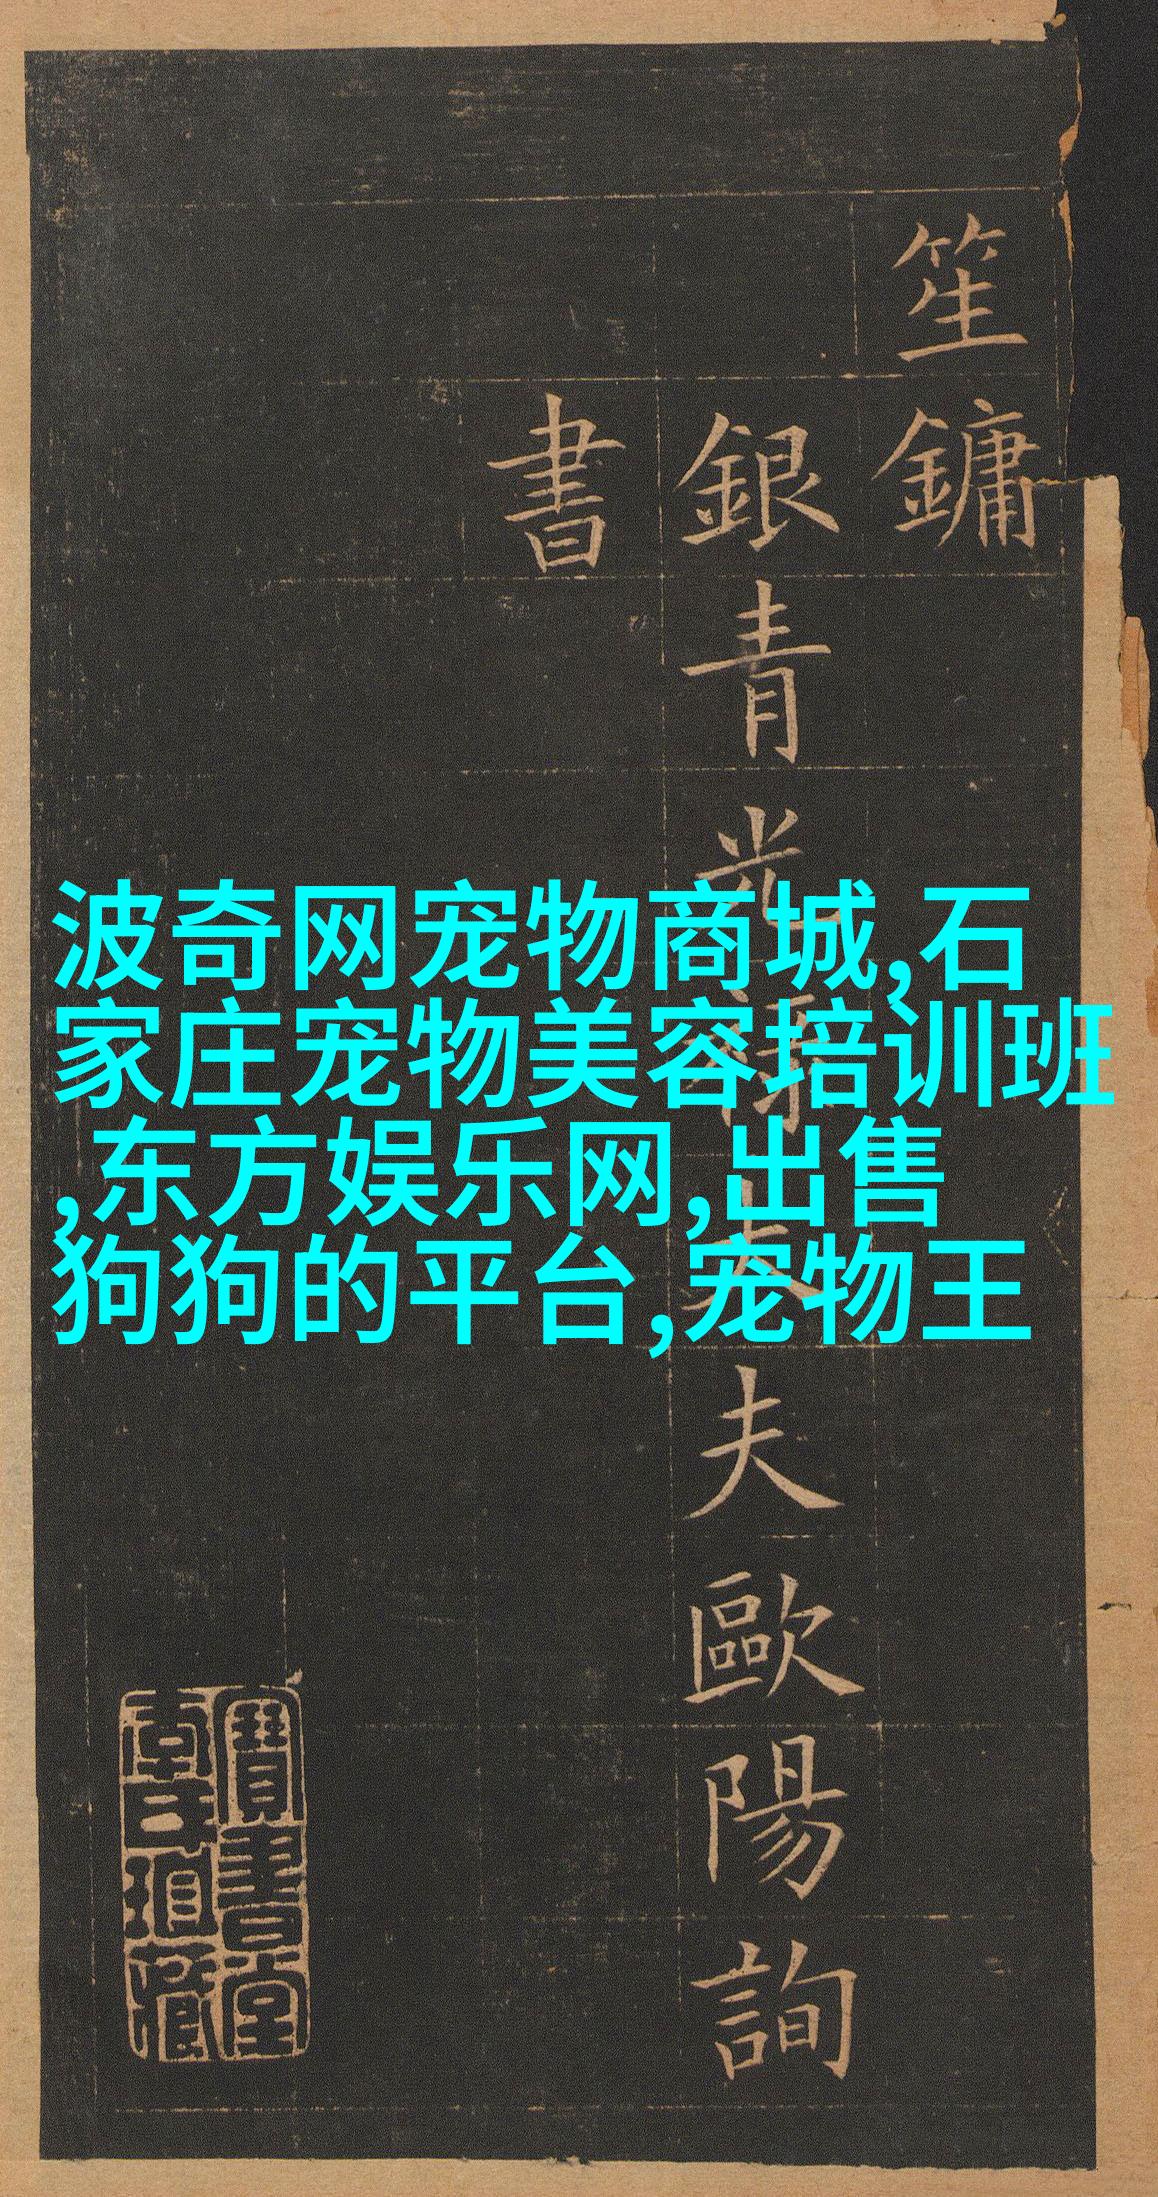 笙鏞
銀青光祿大夫歐陽詢
書
波奇网宠物商城,石
家庄宠物美容培训班
,东方娱乐网,出售
狗狗的平台,宠物王
寶書堂